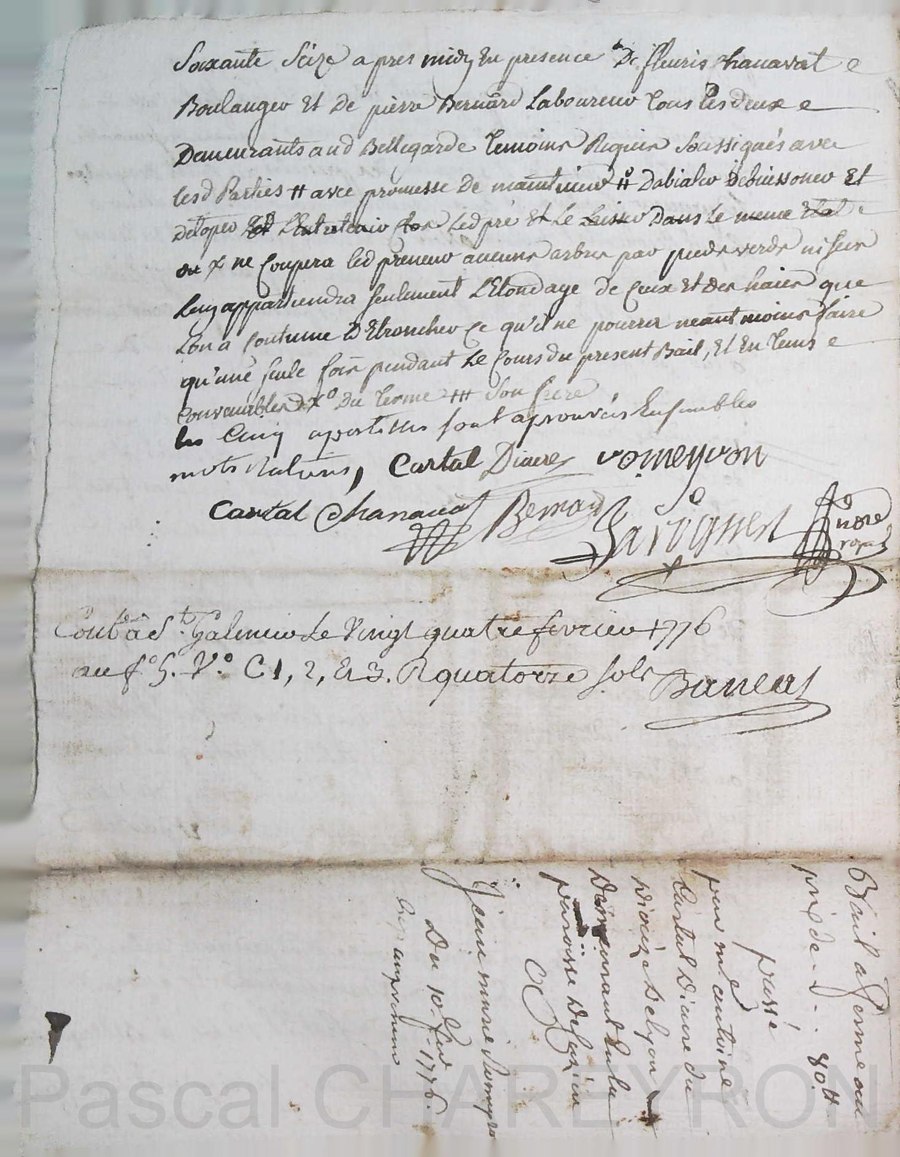 Soixante Seize apres midy En presence De fleuris Chanavat
Boulanger Et de pierre Bernard Laboureur tous les deux
Demeurants aud Bellegarde temoins Requis Soussignés avec
lesd Parties # avec promesse de maintenir # Et
Ledpré Et Le Laisser Dans Le meme Etat
ne Coupera led preneur aucuns arbres par pied verds ni secs
Luy appartiendra seulement L'Etondage de Ceux Et des haies que
Lon a Coutume D'Etroncher Ce qu'il ne pourra neantmoins faire
qu'une seule fois pendant Le Cours du present Bail, Et En tems
Convenables Du terme # Son frere
les Cinq apostilles sont aprouvés Ensembles
mots, Cartal Diacre
Cartal Chanavat Bernard nore royal
Conlé à St Galmier Le Vingt quatre fevrier 1776
au fo 5. Vo C 1, 2, & 3. R quatorze sols
Bail a ferme au
prix de 80.#
passé
par me antoine
Cartal Diacre du
Dioceze De Lyon
Demeurant En la
paroisse De
Jean marie
Du 10. fer 1776.